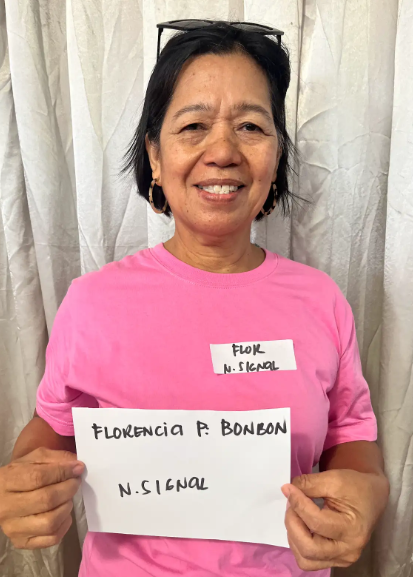 FLOR
N. SIGNAL
FLORENCIA P. BONBON
N. SIGNAL